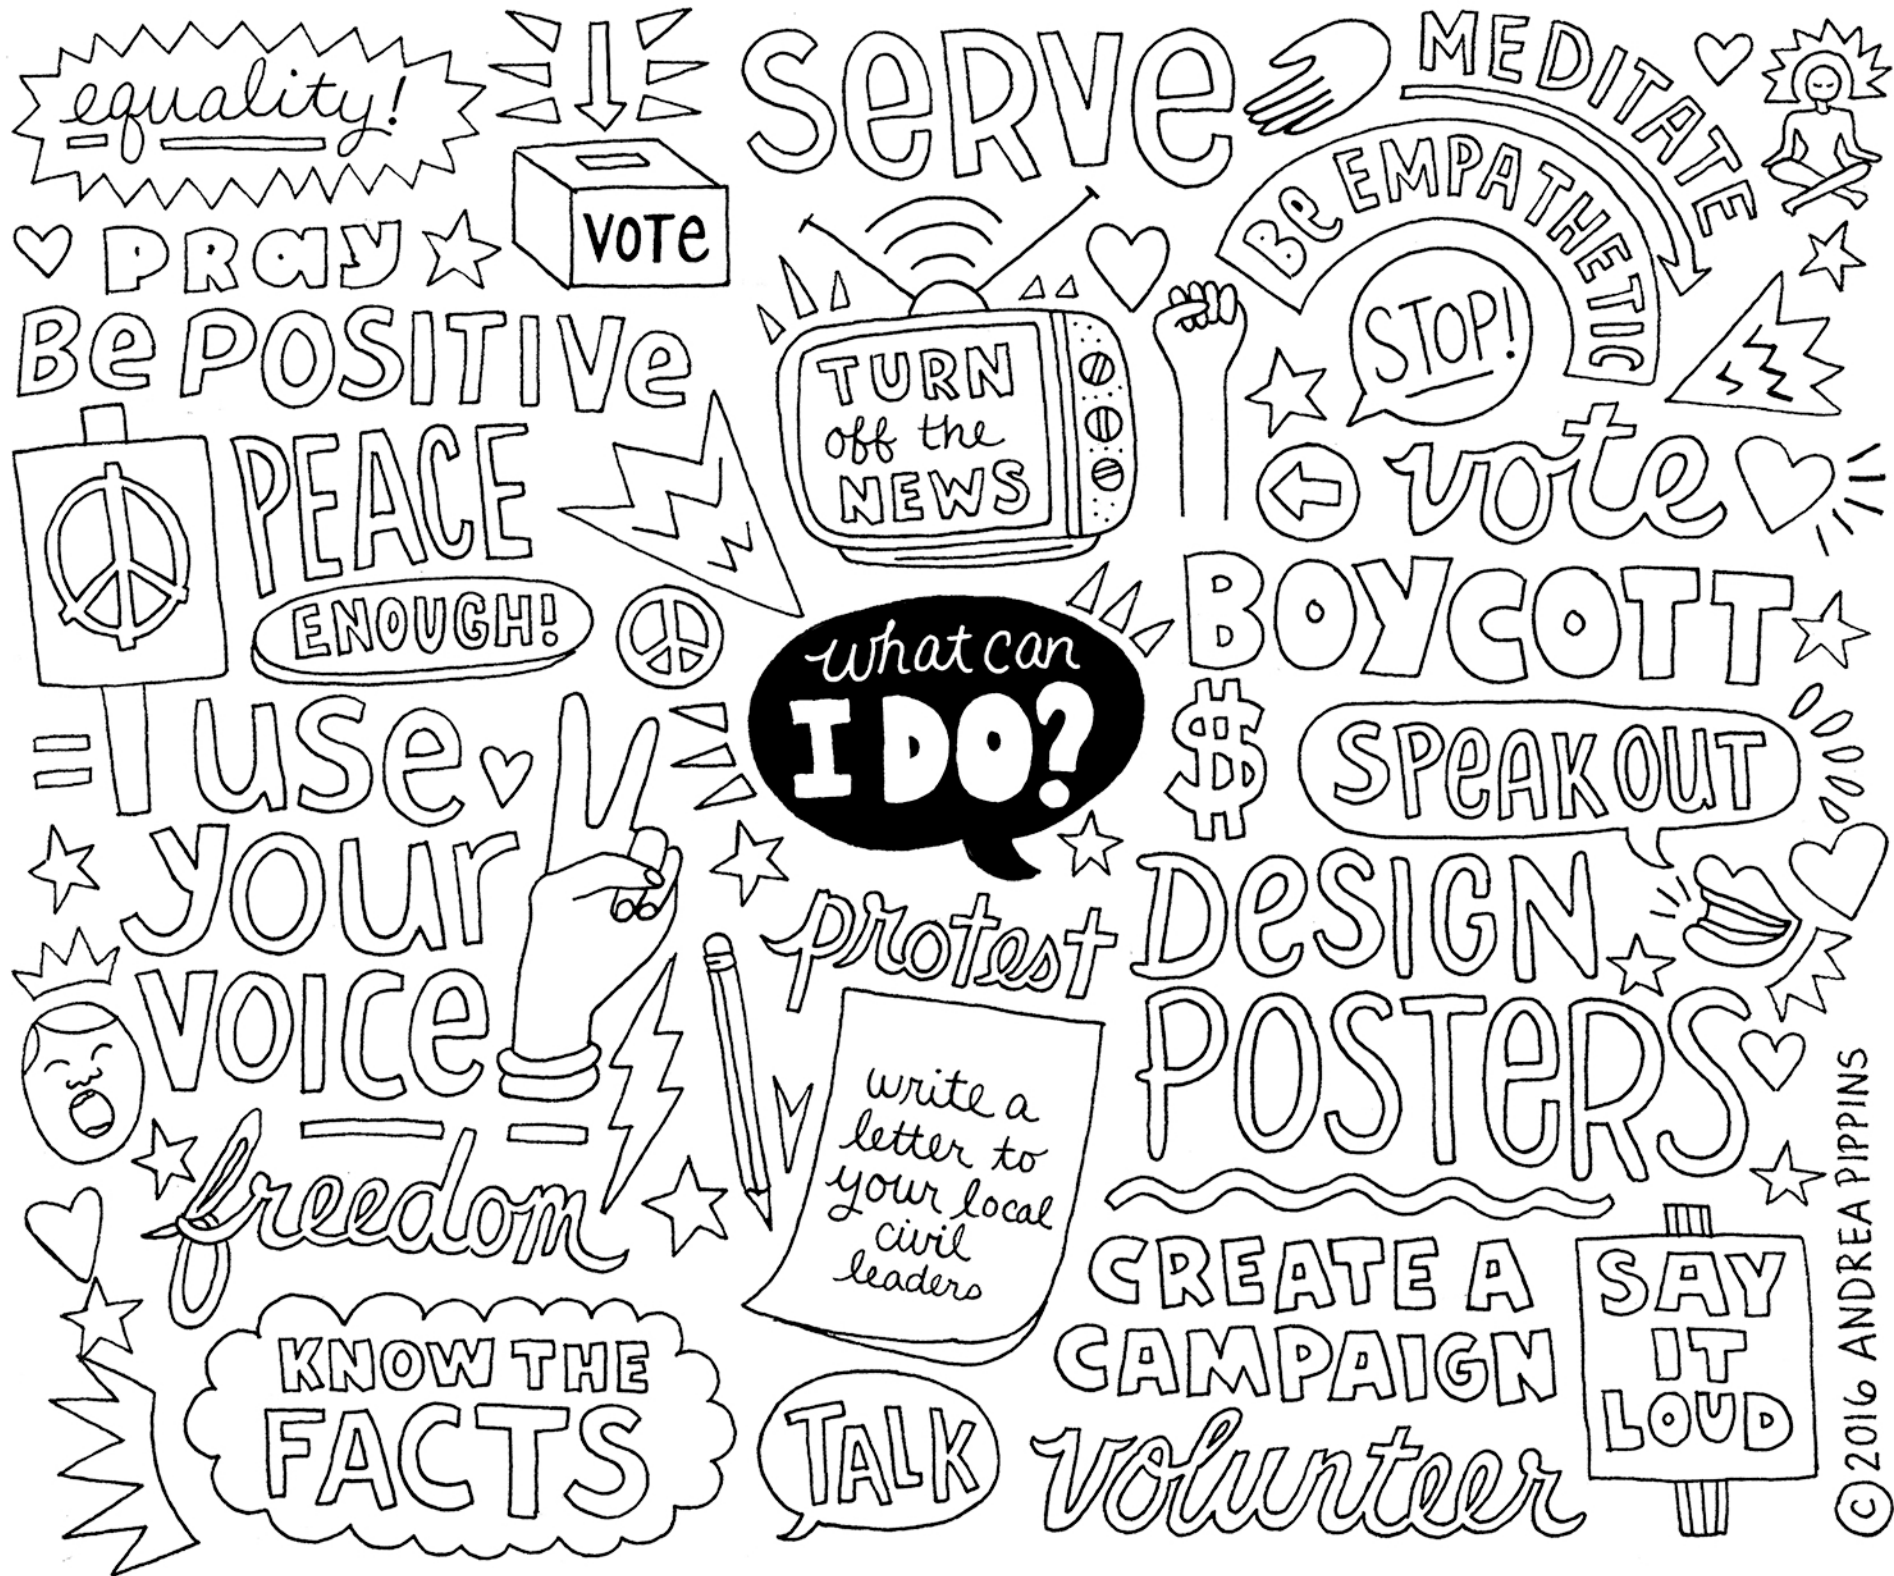 equality!
VOTe
SeRVe
MEDITATE
Be EMPATHETIC
STOP!
PRay
Be POSITIVe
TURN
off the
NEWS
PEACE
ENOUGH!
vote
BOYCOTT
what can
I DO?
$
SPeAK OUT
use
your
VOICe
protest
DeSIGN
POSTeRS
freedom
write a
letter to
your local
civil
leaders
CREATE A
CAMPAIGN
volunteer
SAY
IT
LOUD
KNOW THE
FACTS
TALK
©2016 ANDREA PIPPINS